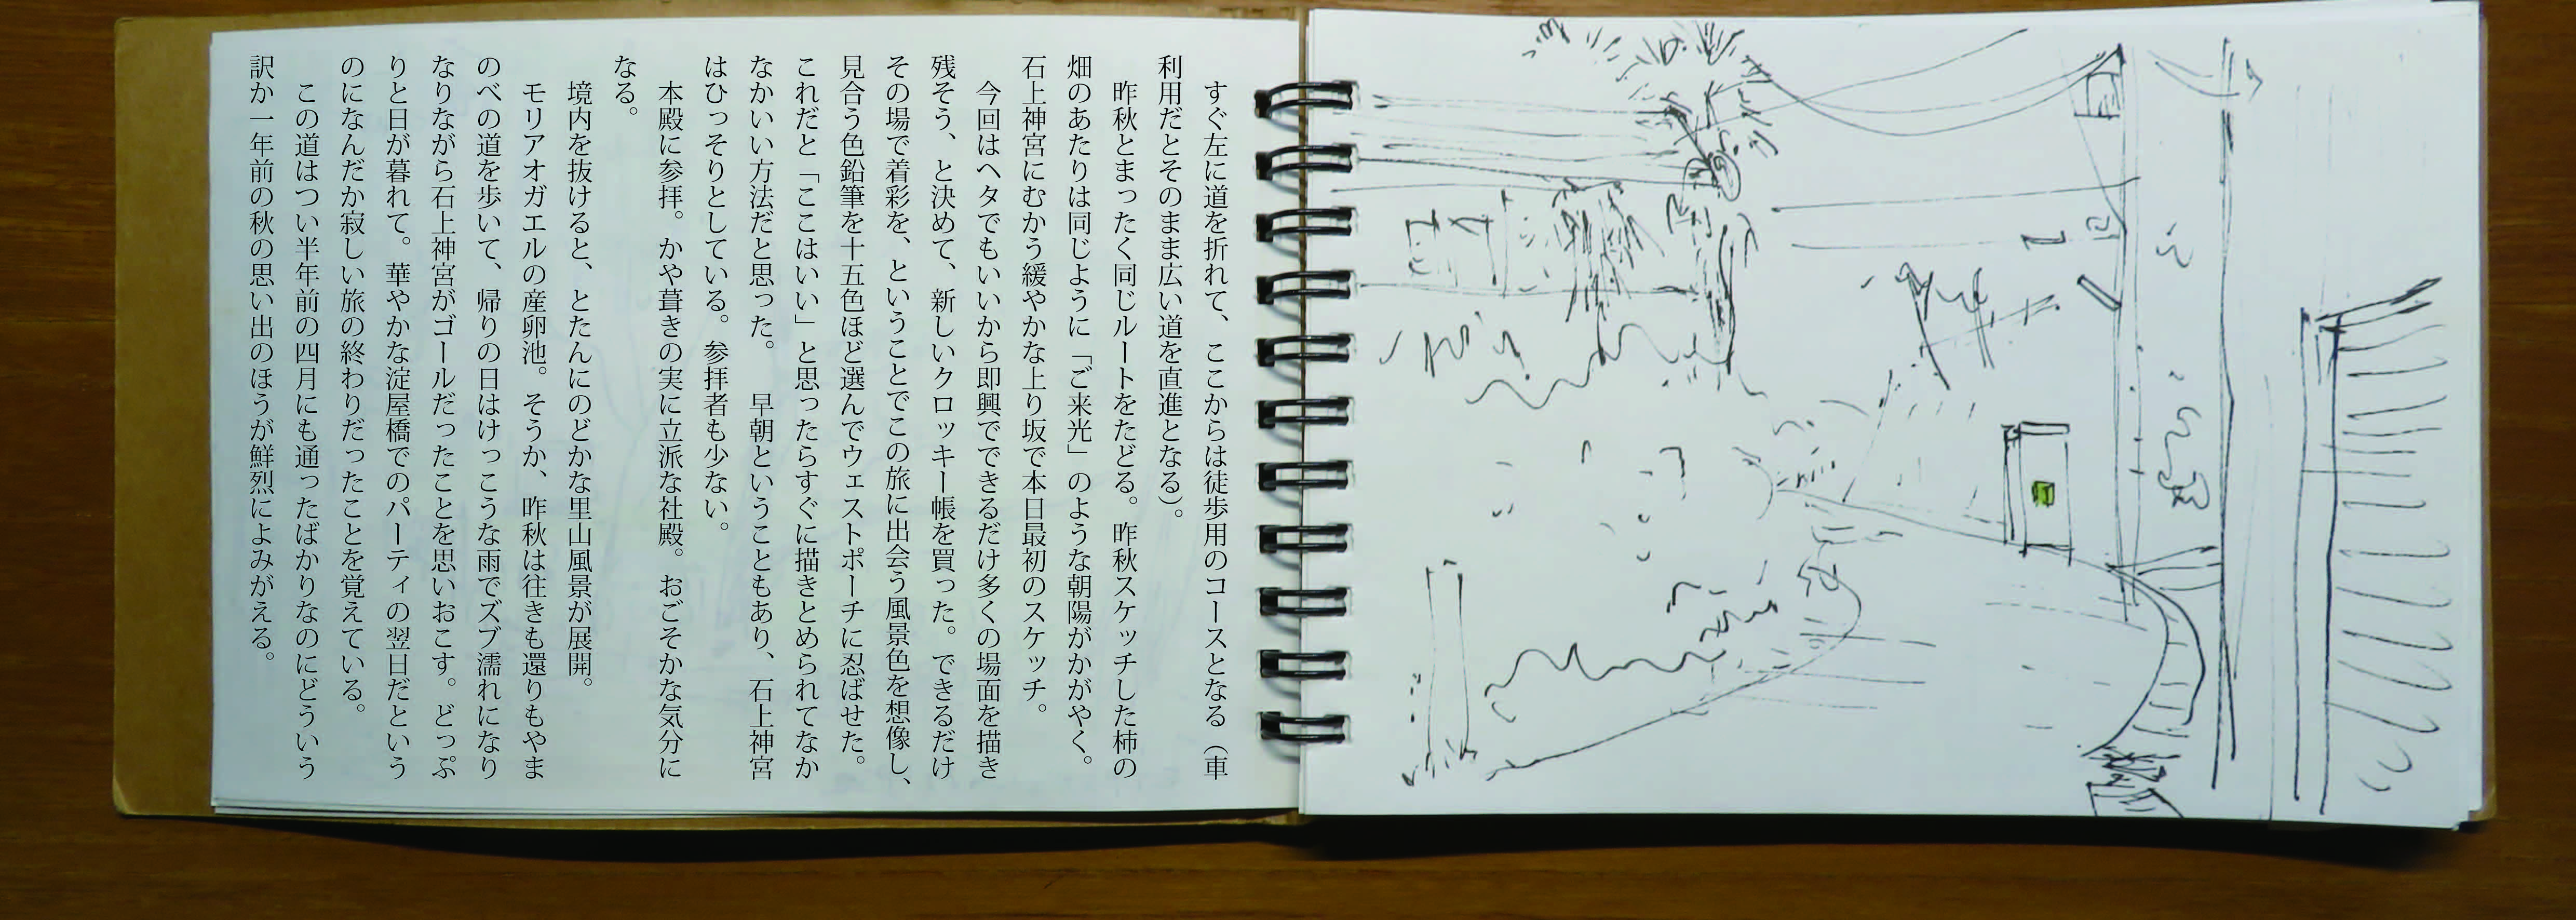 すぐ左に道を折れて、ここからは徒歩用のコースとなる（車
利用だとそのまま広い道を直進となる）。
昨秋とまったく同じルートをたどる。昨秋スケッチした柿の
畑のあたりは同じように「ご来光」のような朝陽がかがやく。
石上神宮にむかう緩やかな上り坂で本日最初のスケッチ。
今回はヘタでもいいから即興でできるだけ多くの場面を描き
残そう、と決めて、新しいクロッキー帳を買った。できるだけ
その場で着彩を、ということでこの旅に出会う風景色を想像し、
見合う色鉛筆を十五色ほど選んでウェストポーチに忍ばせた。
これだと「ここはいい」と思ったらすぐに描きとめられてなか
なかいい方法だと思った。　早朝ということもあり、石上神宮
はひっそりとしている。参拝者も少ない。
本殿に参拝。かや葺きの実に立派な社殿。おごそかな気分に
なる。
境内を抜けると、とたんにのどかな里山風景が展開。
モリアオガエルの産卵池。そうか、昨秋は往きも還りもやま
のべの道を歩いて、帰りの日はけっこうな雨でズブ濡れになり
なりながら石上神宮がゴールだったことを思いおこす。どっぷ
りと日が暮れて。華やかな淀屋橋でのパーティの翌日だという
のになんだか寂しい旅の終わりだったことを覚えている。
この道はつい半年前の四月にも通ったばかりなのにどういう
訳か一年前の秋の思い出のほうが鮮烈によみがえる。